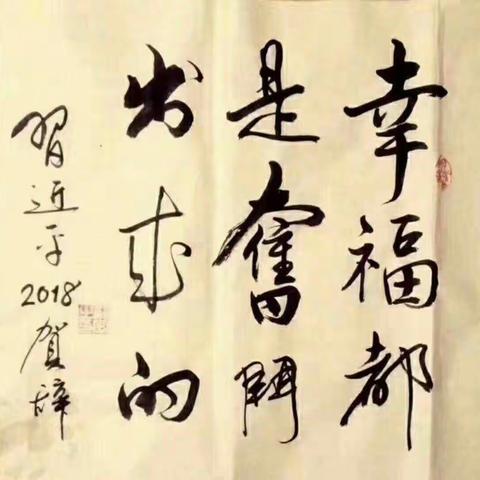 幸福都
是奮鬥
出来的
習近平2018賀辭